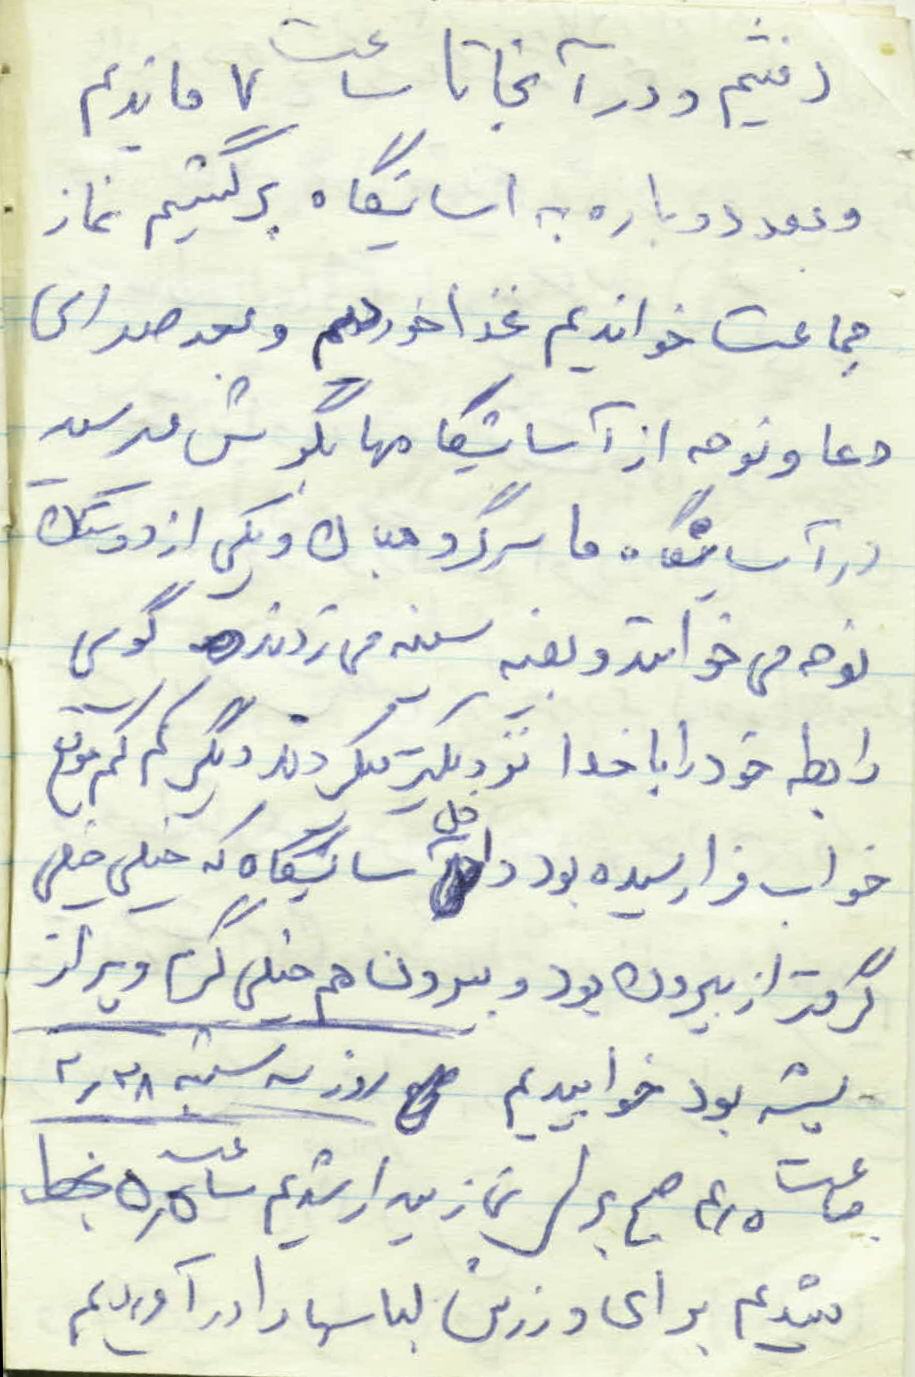 رفتیم و در آنجا تا ساعت ۷ ماندیم
و بعد دوباره به اسایشگاه برگشتیم نماز
جماعت خواندیم غذا خوردیم و بعد صدای
دعا و نوحه از آسایشگاهها بگوش میرسید
در آسایشگاه ما سرگروهبان و یکی از دوستان
نوحه می خواندند و بقیه سینه می زدند گویی
رابطه خود را با خدا نزدیکتر میکردند دیگر کم کم موقع
خواب فرا رسیده بود داخل آسایشگاه که خیلی خیلی
گرمتر از بیرون بود و بیرون هم خیلی گرم و پر از
پشه بود خوابیدیم روز سه شنبه ۲٫۲۸
ساعت ۴٫۵ صبح برای نماز بیدار شدیم ساعت ۵٫۵ بخط
شدیم برای ورزش لباسها را در آوردیم